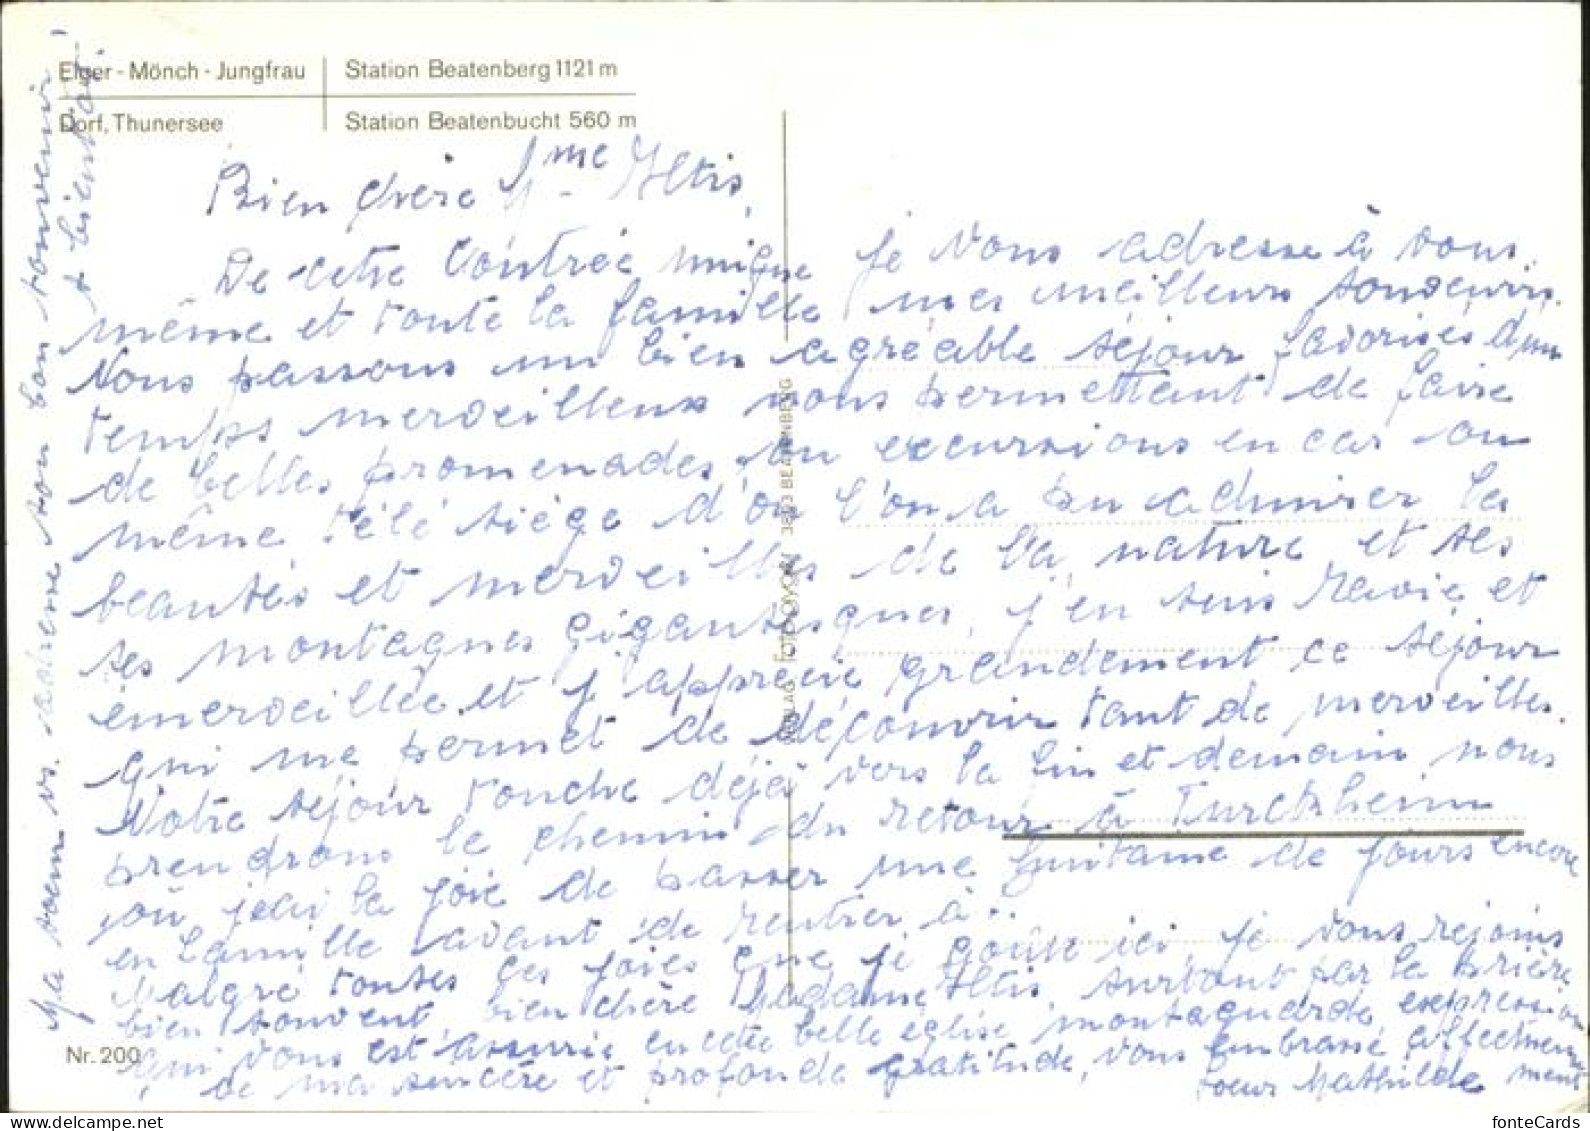 Eiger - Mönch - Jungfrau
Station Beatenberg 1121 m
Dorf, Thunersee
Station Beatenbucht 560 m
Bien chère Mme Iltis,
De cette Contrée unique je vous adresse à vous
même et toute la famille mes meilleurs souvenirs.
Nous passons un bien agréable séjour favorisés d'un
temps merveilleux nous permettant de faire
de belles promenades, ou excursions en car ou
même télé siège d'où l'on a pu admirer les
beautés et merveilles de la nature et ses
ses montagnes gigantesques, j'en suis ravie et
émerveillée et j'apprécie grandement ce séjour
qui me permet de découvrir tant de merveilles.
Notre séjour touche déjà vers la fin et demain nous
prendrons le chemin du retour à Turckheim
où j'ai la joie de passer une huitaine de jours encore
en famille avant de rentrer à..
Malgré toutes ces joies que je goûte ici, je vous rejoins
bien souvent, bien chère Madame Iltis, surtout par la prière
qui vous est assurée en cette belle église montagnarde expression
de ma sincère et profonde gratitude, vous embrasse affectueuse-
ment
soeur Mathilde
Ma soeur vs. adresse son bon souvenir
+ bientôt
VERLAG FOTO 3803 BEATENBERG
Nr. 200
fonteCards